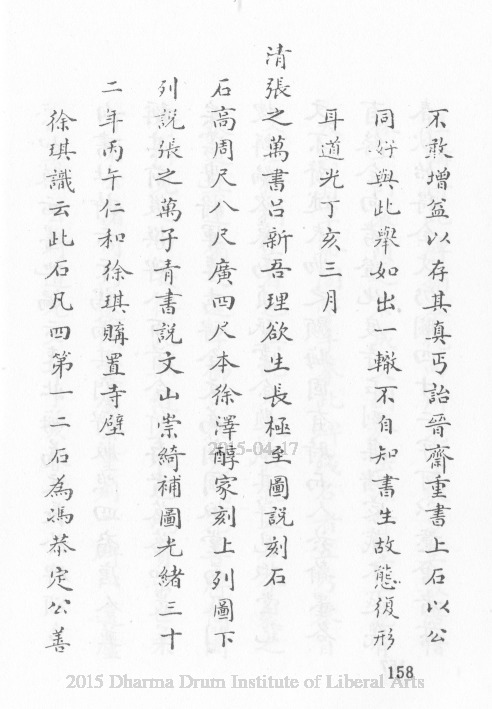 不敢增益以存其真丐詒晉齋重書上石以公
同好與此舉如出一轍不自知書生故態復形
耳道光丁亥三月
清張之萬書呂新吾理欲生長極至圖說刻石
石高周尺八尺廣四尺本徐澤醇家刻上列圖下
列說張之萬子青書說文山崇綺補圖光緒三十
二年丙午仁和徐琪購置寺壁
徐琪識云此石凡四第一二石為馮恭定公善
2015-04-17
158
2015 Dharma Drum Institute of Liberal Arts